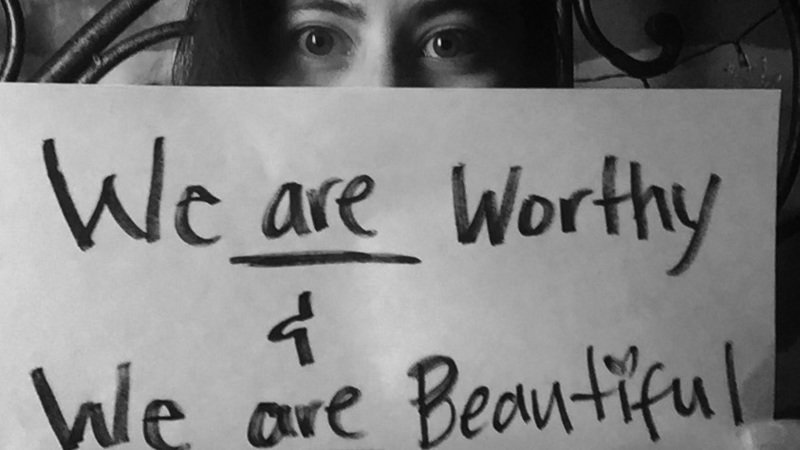 We are Worthy
&
We are Beautiful